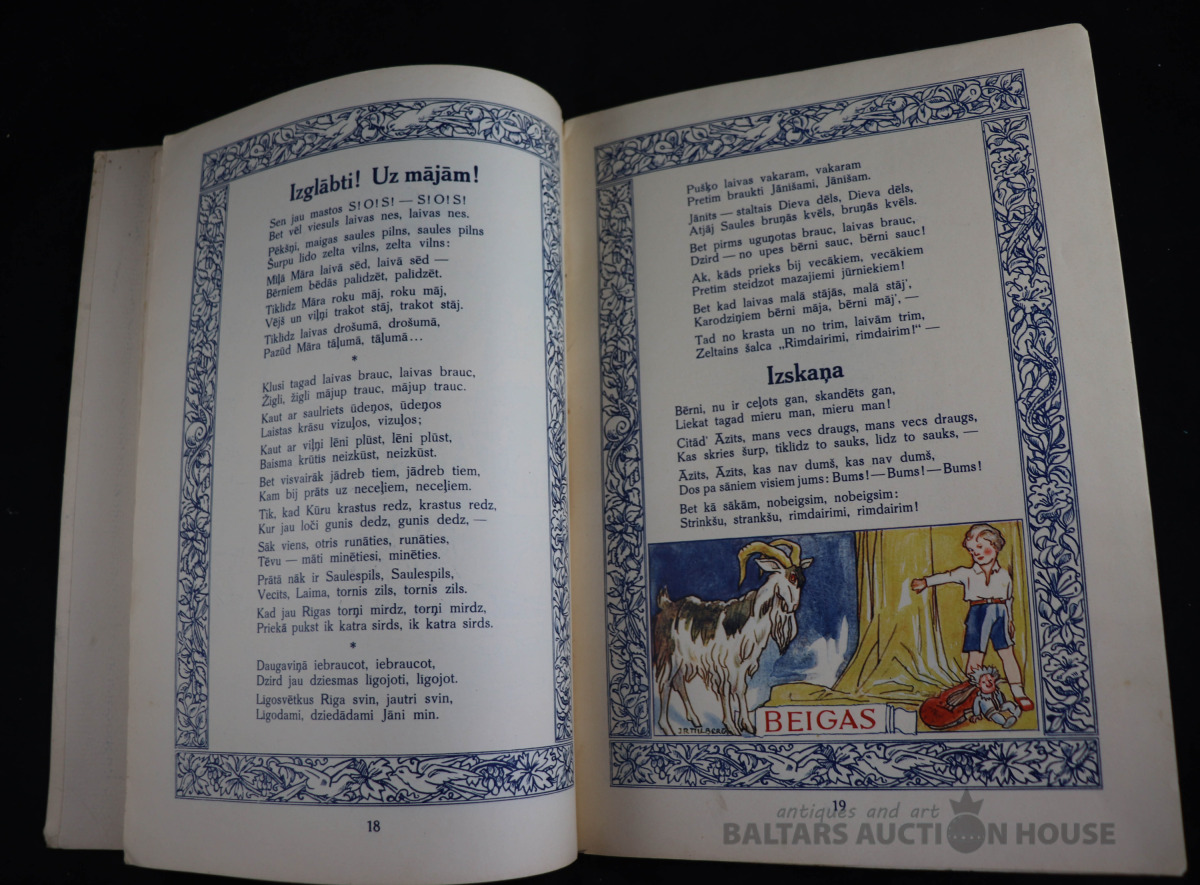 Izglābti! Uz mājām!
Sen jau mastos S!O!S! — S!O!S!
Bet vēl viesuls laivas nes, laivas nes.
Pēkšņi, maigas saules pilns, saules pilns
Šurpu lido zelta vilns, zelta vilns:
Mīļā Māra laivā sēd, laivā sēd —
Bērniem bēdās palīdzēt, palīdzēt.
Tiklīdz Māra roku māj, roku māj,
Vējš un viļņi trakot stāj, trakot stāj.
Tiklīdz laivas drošumā, drošumā,
Pazūd Māra tāļumā, tāļumā...
*
Klusi tagad laivas brauc, laivas brauc,
Žigli, žigli mājup trauc, mājup trauc.
Kaut ar saulriets ūdeņos, ūdeņos
Laistas krāsu vizuļos, vizuļos;
Kaut ar viļņi lēni plūst, lēni plūst,
Baisma krūtīs neizkūst, neizkūst.
Bet visvairāk jādreb tiem, jādreb tiem,
Kam bij prāts uz neceļiem, neceļiem.
Tik, kad Kūru krastus redz, krastus redz,
Kur jau loči gunis dedz, gunis dedz, —
Sāk viens, otris runāties, runāties,
Tēvu — māti minētiesi, minēties.
Prātā nāk ir Saulespils, Saulespils,
Vecīts, Laima, tornis zils, tornis zils.
Kad jau Rīgas torņi mirdz, torņi mirdz,
Priekā pukst ik katra sirds, ik katra sirds.
*
Daugaviņā iebraucot, iebraucot,
Dzird jau dziesmas līgojoti, līgojot.
Līgosvētkus Rīga svin, jautri svin,
Līgodami, dziedādami Jāni min.
18
Pušķo laivas vakaram, vakaram
Pretim braukti Jānīšami, Jānīšam.
Jānīts — staltais Dieva dēls, Dieva dēls,
Atjāj Saules bruņās kvēls, bruņās kvēls.
Bet pirms uguņotas brauc, laivas brauc,
Dzird — no upes bērni sauc, bērni sauc!
Ak, kāds prieks bij vecākiem, vecākiem
Pretim steidzot mazajiemi jūrniekiem!
Bet kad laivas malā stājās, malā stāj',
Karodziņiem bērni māja, bērni māj', —
Tad no krasta un no trim, laivām trim,
Zeltains šalca „Rimdairimi, rimdairim!“ —
Izskaņa
Bērni, nu ir ceļots gan, skandēts gan,
Liekat tagad mieru man, mieru man!
Citād' Āzīts, mans vecs draugs, mans vecs draugs,
Kas skries šurp, tiklīdz to sauks, līdz to sauks, —
Āzīts, Āzīts, kas nav dumš, kas nav dumš,
Dos pa sāniem visiem jums: Bums! — Bums! — Bums!
Bet kā sākām, nobeigsim, nobeigsim:
Strinkšu, strankšu, rimdairimi, rimdairim!
BEIGAS
19
antiques and art
BALTARS AUCTION HOUSE